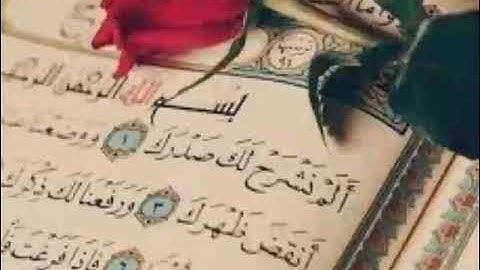 بسم الله الرحمن الرحيم
أَلَمْ نَشْرَحْ لَكَ صَدْرَكَ ١ وَوَضَعْنَا
أَنقَضَ ظَهْرَكَ ٣ وَرَفَعْنَا لَكَ ذِكْرَكَ
٦ فَإِذَا فَرَغْتَ